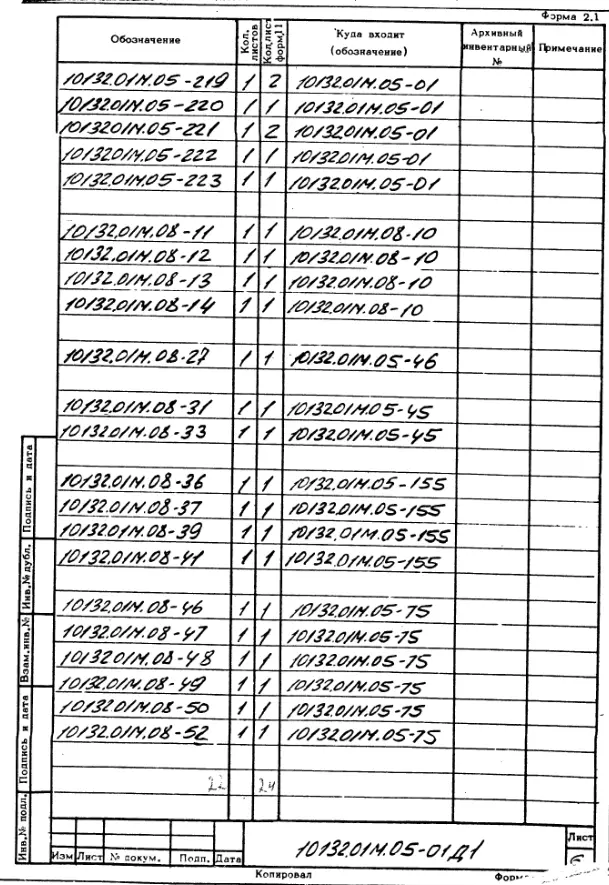 Форма 2.1
Обозначение Кол. листов Кол. лист форм. 11 Куда входит (обозначение) Архивный инвентарный № Примечание
10132.01М.05-219 1 2 10132.01М.05-01
10132.01М.05-220 1 1 10132.01М.05-01
10132.01М.05-221 1 2 10132.01М.05-01
10132.01М.05-222 1 1 10132.01М.05-01
10132.01М.05-223 1 1 10132.01М.05-01
10132.01М.08-11 1 1 10132.01М.08-10
10132.01М.08-12 1 1 10132.01М.08-10
10132.01М.08-13 1 1 10132.01М.08-10
10132.01М.08-14 1 1 10132.01М.08-10
10132.01М.08-27 1 1 10132.01М.05-46
10132.01М.08-31 1 1 10132.01М.05-45
10132.01М.08-33 1 1 10132.01М.05-45
10132.01М.08-36 1 1 10132.01М.05-155
10132.01М.08-37 1 1 10132.01М.05-155
10132.01М.08-39 1 1 10132.01М.05-155
10132.01М.08-41 1 1 10132.01М.05-155
10132.01М.08-46 1 1 10132.01М.05-75
10132.01М.08-47 1 1 10132.01М.05-75
10132.01М.08-48 1 1 10132.01М.05-75
10132.01М.08-49 1 1 10132.01М.05-75
10132.01М.08-50 1 1 10132.01М.05-75
10132.01М.08-52 1 1 10132.01М.05-75
22 24
Инв.№ подл. Подпись и дата Взам.инв.№ Инв.№ дубл. Подпись и дата
10132.01М.05-01Д1
Лист
Изм Лист № докум. Подп. Дата
Копировал